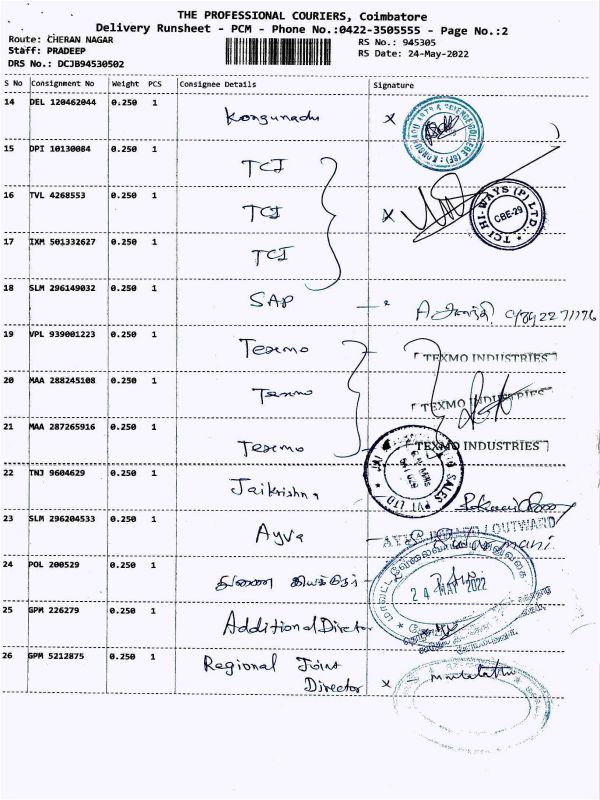 THE PROFESSIONAL COURIERS, Coimbatore
Delivery Runsheet - PCM - Phone No.:0422-3505555 - Page No.:2
Route: CHERAN NAGAR
RS No.: 945305
Staff: PRADEEP
RS Date: 24-May-2022
DRS No.: DCJB94530502
S No Consignment No Weight PCS Consignee Details Signature
14 DEL 120462044 0.250 1 Kongunadu x
15 DPI 10130084 0.250 1 TCI
16 TVL 4268553 0.250 1 TCI x
TCI HI-WAYS (P) LTD.
CBE-29
17 IXM 501332627 0.250 1 TCI
18 SLM 296149032 0.250 1 SAP
19 VPL 939001223 0.250 1 Texmo
TEXMO INDUSTRIES
20 MAA 288245108 0.250 1 Texmo
TEXMO INDUSTRIES
21 MAA 287265916 0.250 1 Texmo
TEXMO INDUSTRIES
SALES PVT LTD
22 TNJ 9604629 0.250 1 Jaikrishna
23 SLM 296204533 0.250 1 Ayva
OUTWARD
24 POL 200529 0.250 1 துணை இயக்குநர்
24 MAY 2022
25 GPM 226279 0.250 1 Additional Director
26 GPM 5212875 0.250 1 Regional Joint
Director x